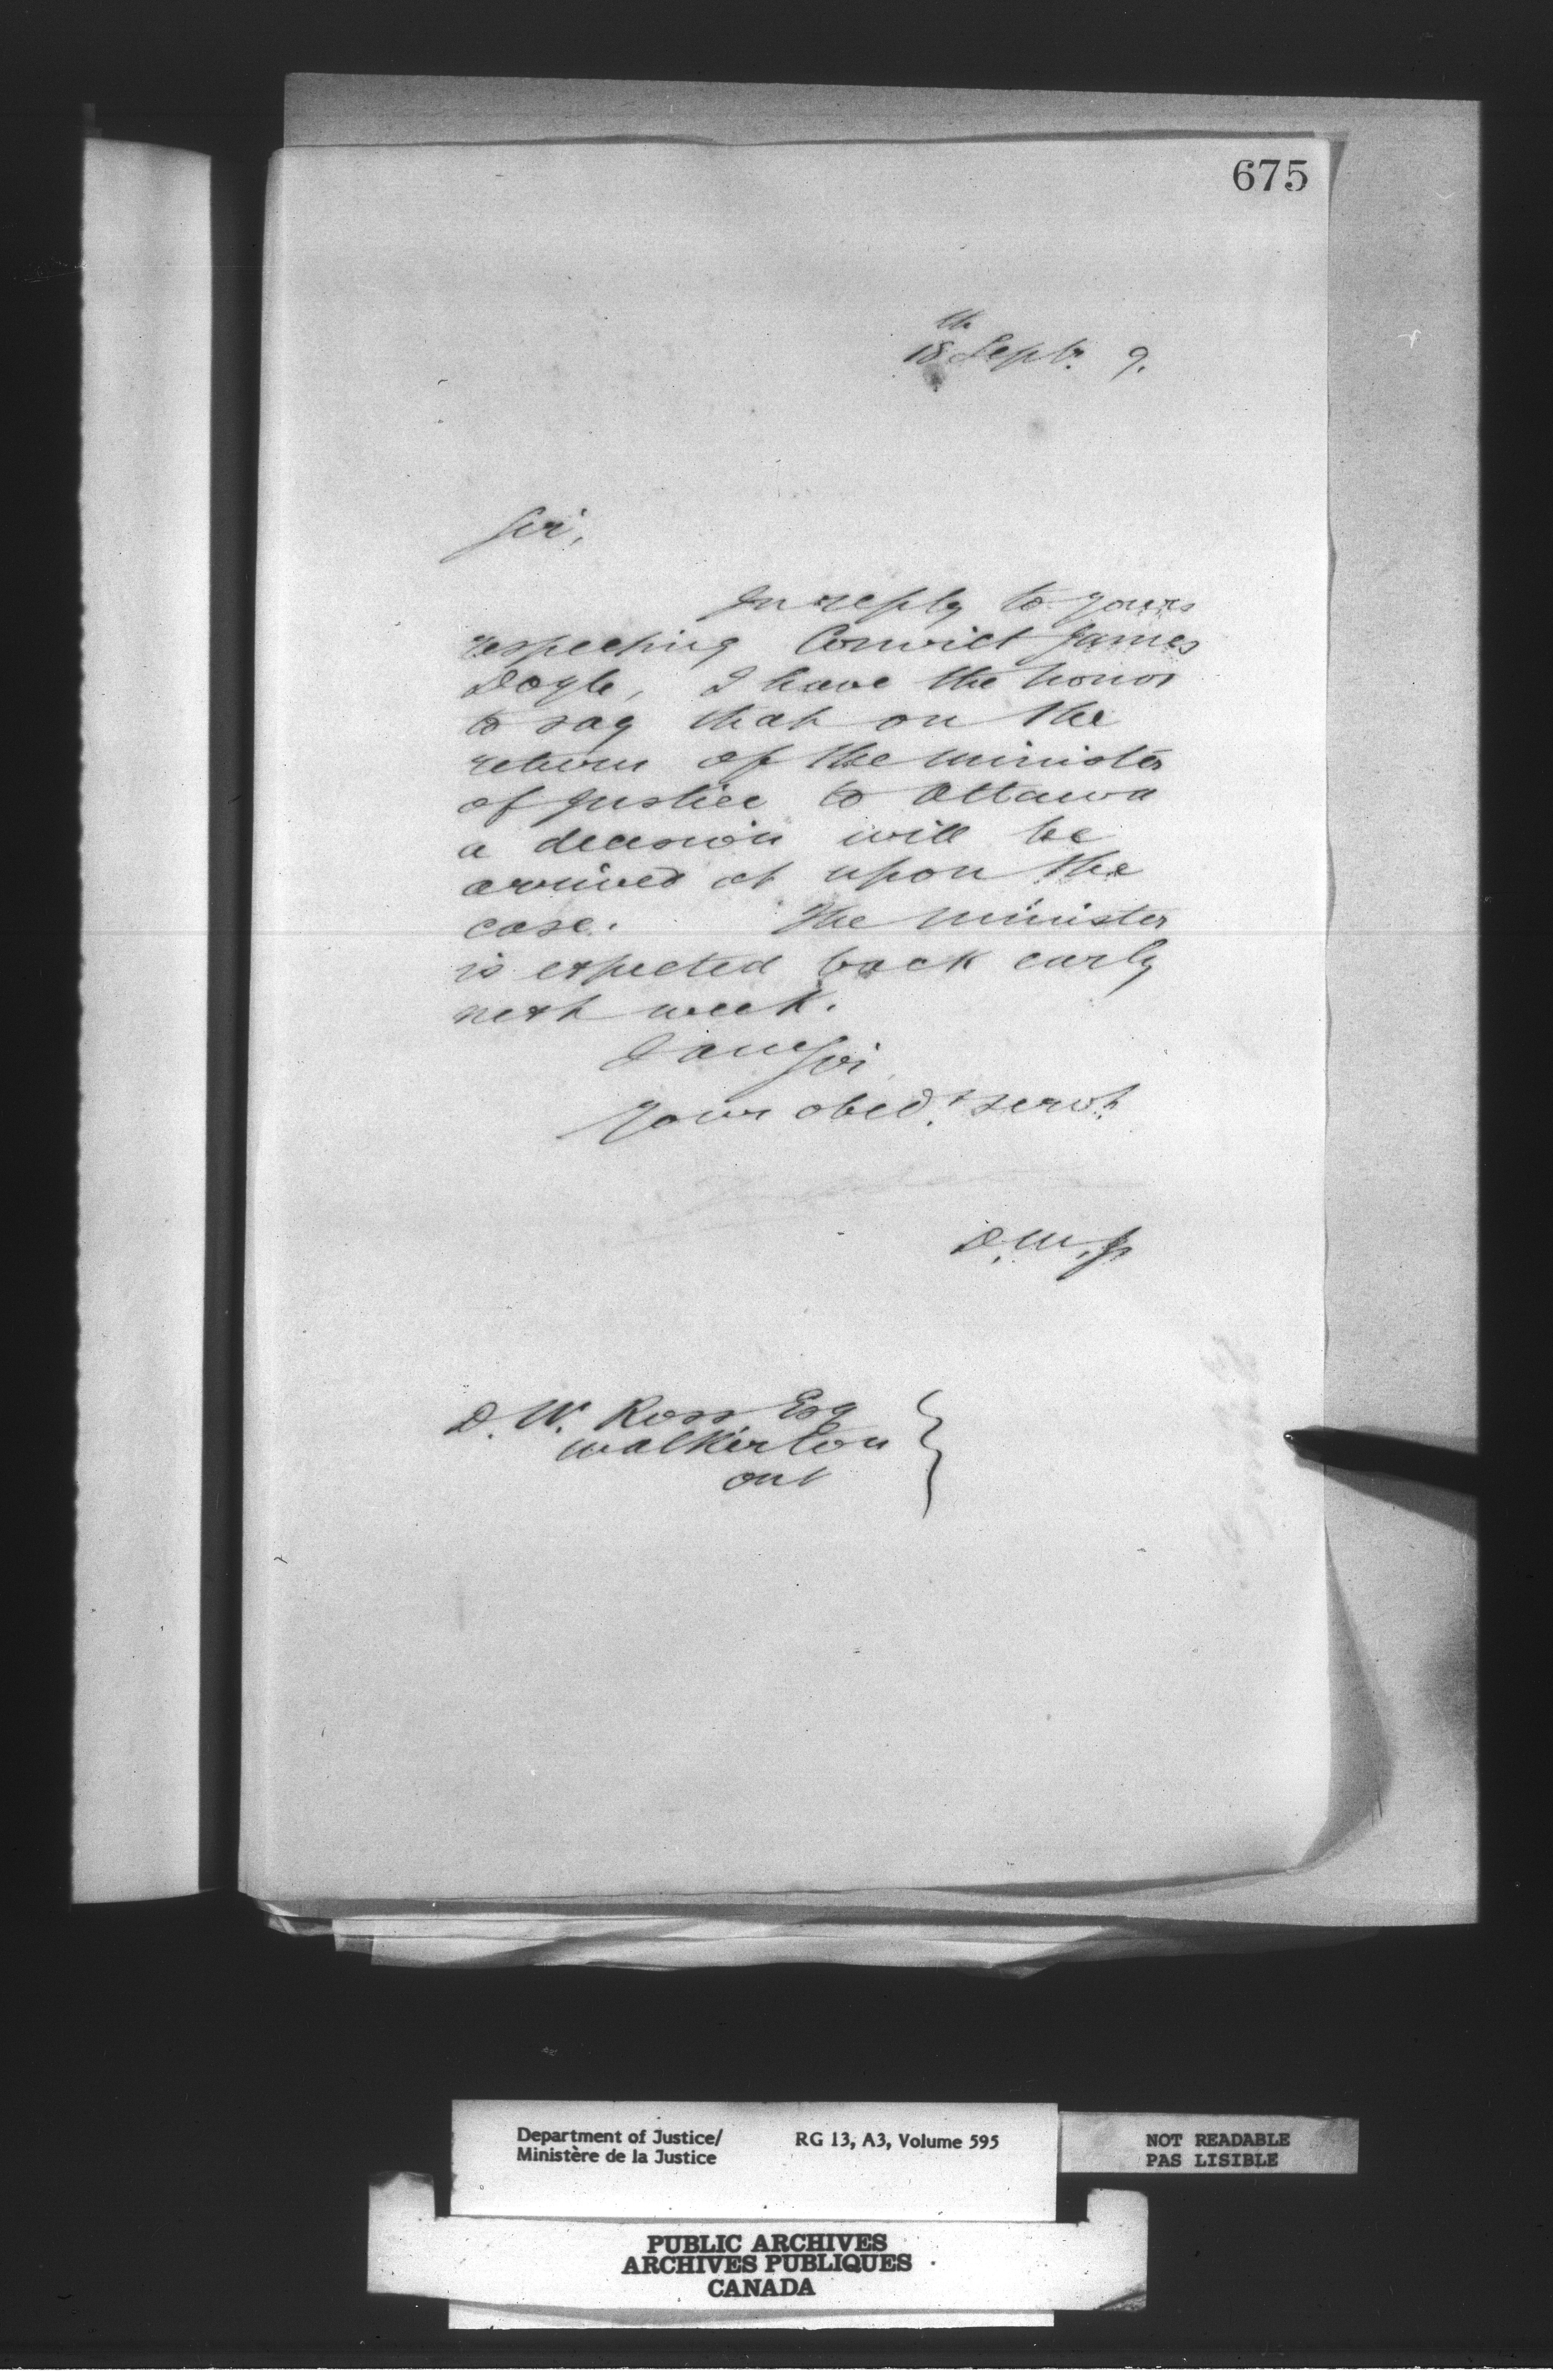 675
18th Septr. 9.
Sir,
In reply to yours
respecting Convict James
Doyle, I have the honor
to say that on the
return of the minister
of Justice to Ottawa
a decision will be
arrived at upon the
case. The minister
is expected back early
next week.
I am Sir
Your obedt. servt.
D. M. J.
D. W. Ross Esq
Walkerton
Ont
Department of Justice/
Ministère de la Justice
RG 13, A3, Volume 595
NOT READABLE
PAS LISIBLE
PUBLIC ARCHIVES
ARCHIVES PUBLIQUES
CANADA